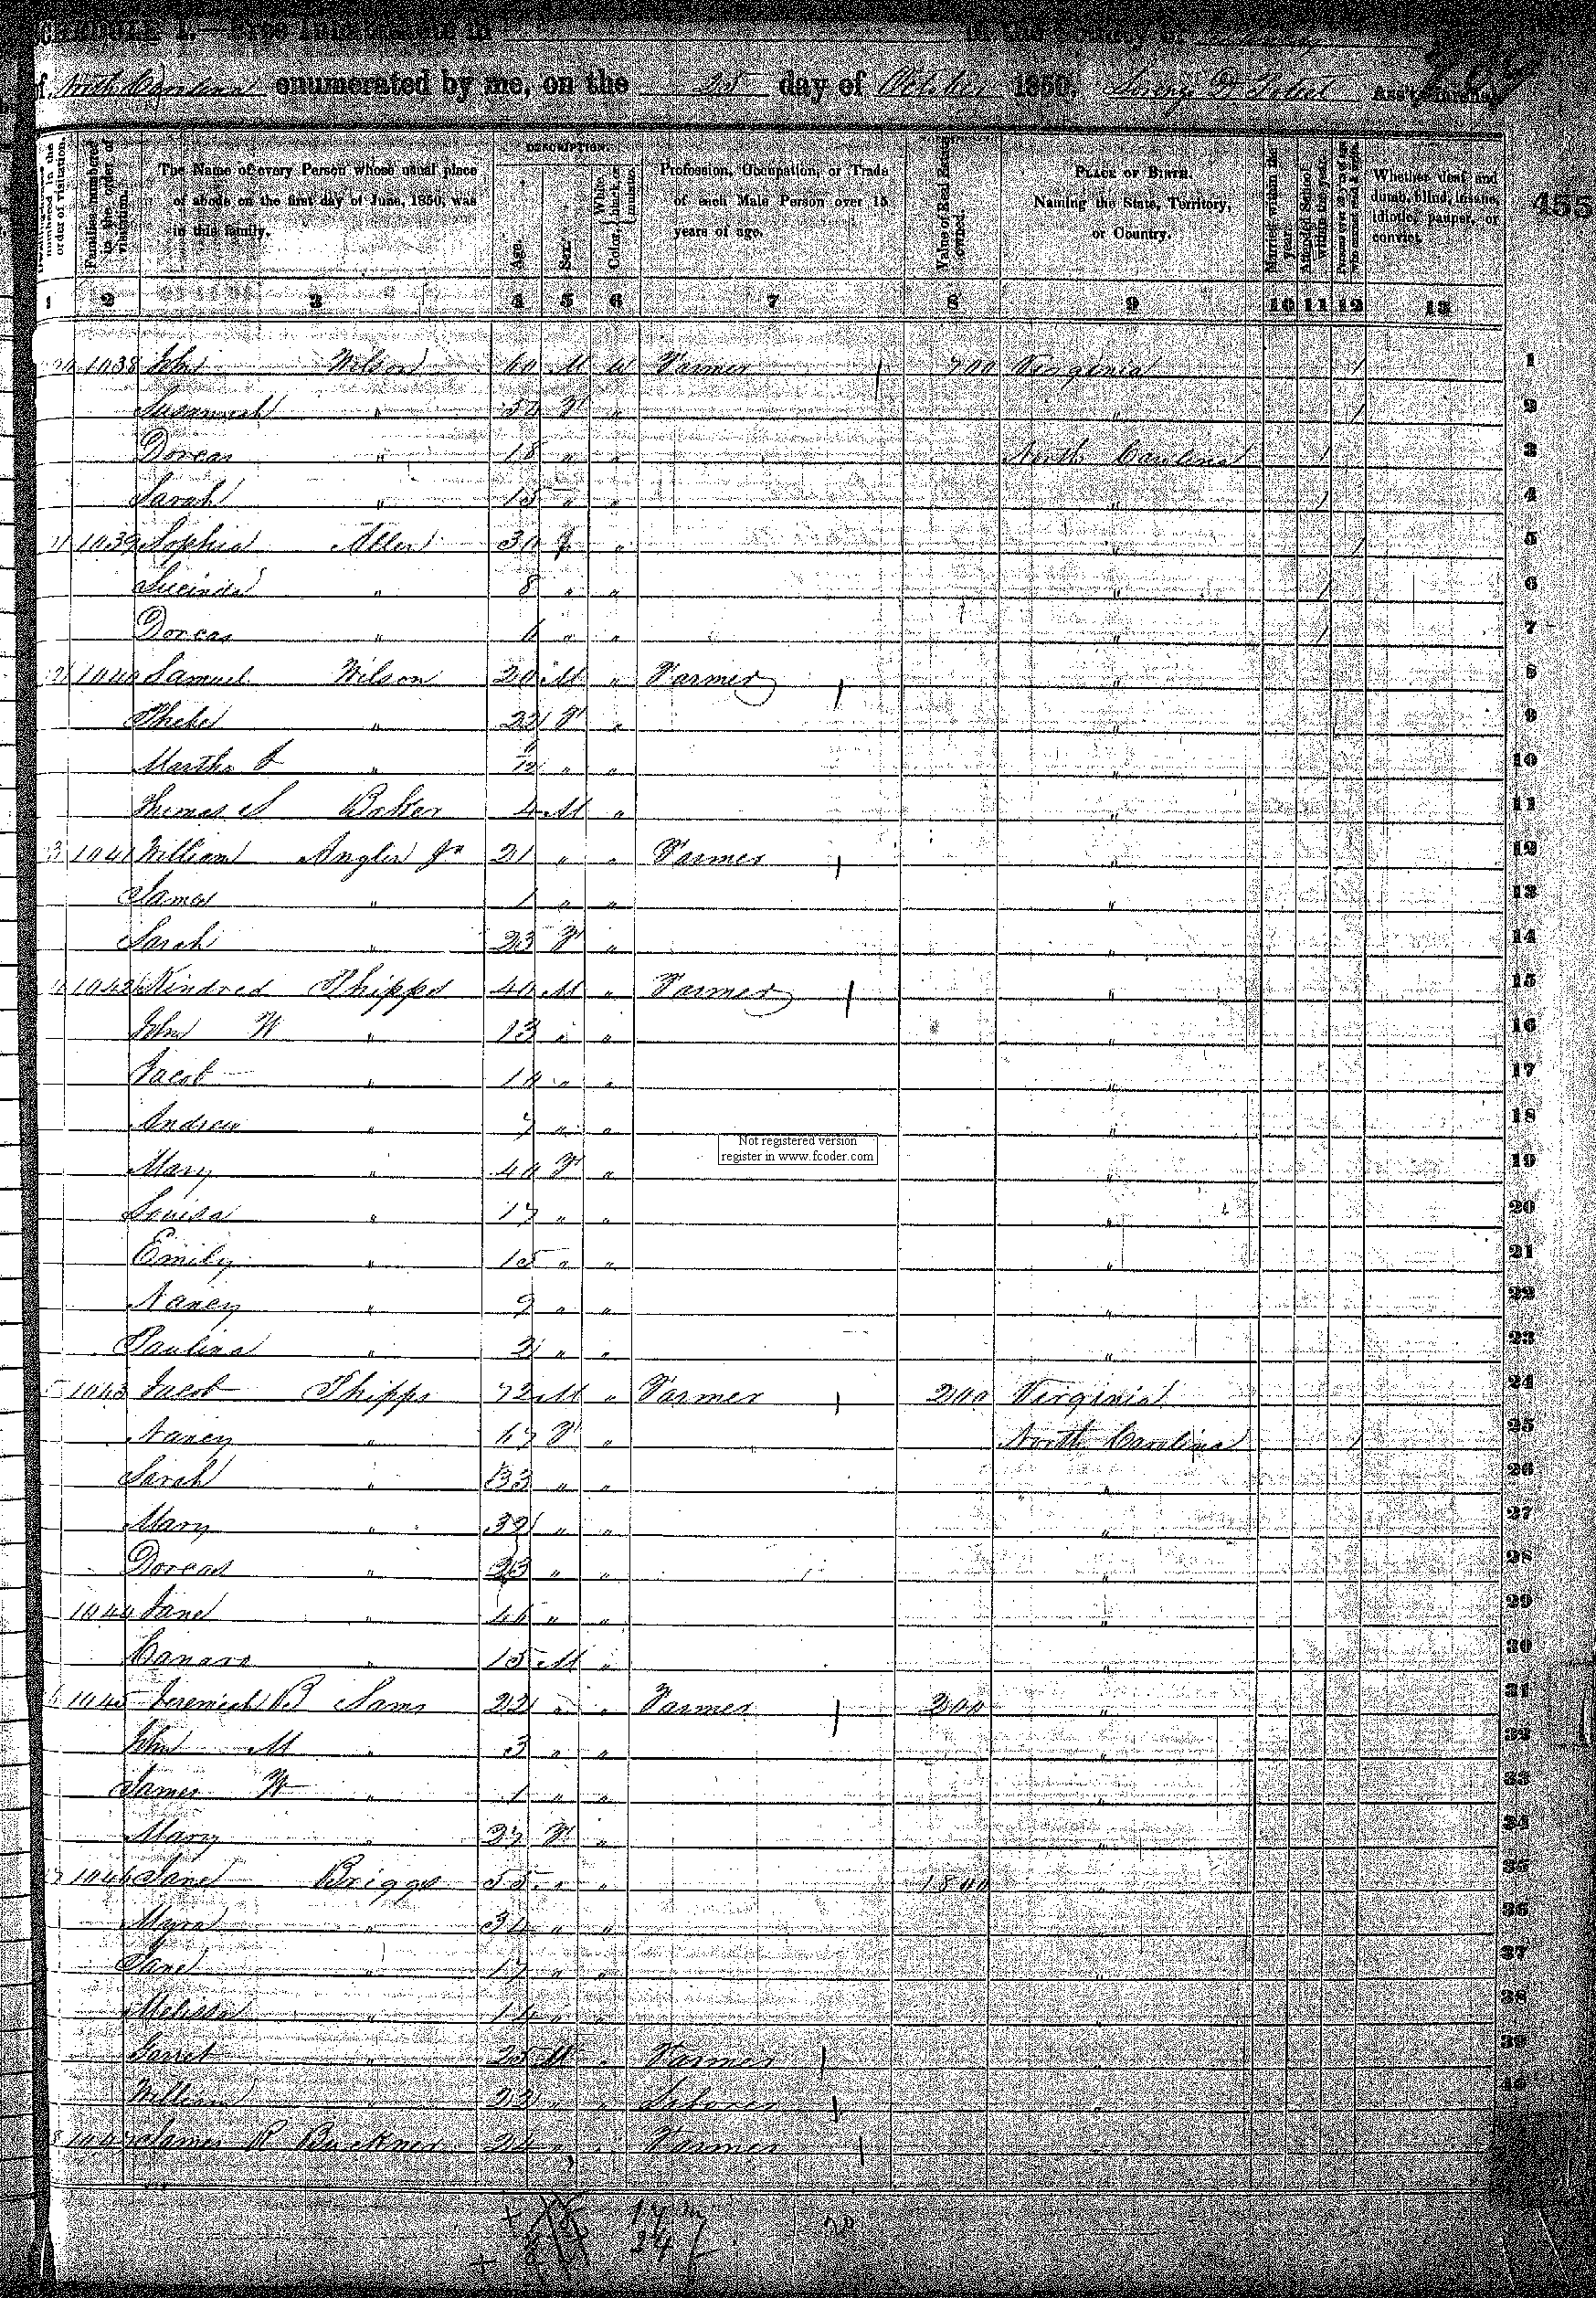 SCHEDULE I.—Free Inhabitants in in the County of
of North Carolina enumerated by me, on the 25 day of October 1850. Ass't Marshal
455
DESCRIPTION.
Dwelling-houses numbered in the order of visitation.
Families numbered in the order of visitation.
The Name of every Person whose usual place of abode on the first day of June, 1850, was in this family.
Age. Sex. Color, White, black, or mulatto.
Profession, Occupation, or Trade of each Male Person over 15 years of age.
Value of Real Estate owned.
PLACE OF BIRTH. Naming the State, Territory, or Country.
Married within the year.
Attended School within the year.
Persons over 20 y'rs of age who cannot read & write.
Whether deaf and dumb, blind, insane, idiotic, pauper, or convict.
1 2 3 4 5 6 7 8 9 10 11 12 13
1038 John Wilson 60 M W Farmer 700 Virginia / 1
Susannah " F " " / 2
Dorcas " 18 " " North Carolina / 3
Sarah " 15 " " " / 4
1039 Sophia Allen 30 f " " / 5
Lucinda " 8 " " " / 6
Dorcas " 6 " " " / 7
1040 Samuel Wilson 20 M " Farmer " 8
Phebe " 22 F " " 9
Martha " " " " 10
Thomas S Baker 4 M " " 11
1041 William Angler Jr 21 " " Farmer " 12
James " 1 " " " 13
Sarah " 23 F " " 14
1042 Kindred Phipps 40 M " Farmer " 15
John W " 13 " " " 16
Jacob " 10 " " " 17
Andrew " 7 " " " 18
Not registered version
register in www.fcoder.com
Mary " 40 F " " 19
Louisa " 17 " " " 20
Emily " 15 " " " 21
Nancy " 9 " " " 22
Paulina " 2 " " " 23
1043 Jacob Phipps 72 M " Farmer 200 Virginia 24
Nancy " 67 F " North Carolina / 25
Sarah " 33 " " " 26
Mary " 32 " " " 27
Dorcas " 23 " " " 28
1044 Jane " 46 " " " 29
" 15 M " " 30
1045 Jeremiah B Sams 22 " " Farmer 200 " 31
John M " 3 " " " 32
James W " 1 " " " 33
Mary " 27 F " " 34
1046 Jane Briggs 55 " " 1800 " 35
Myra " 34 " " " 36
Jane " 17 " " " 37
Melissa " 14 " " " 38
Garret " 25 M " Farmer " 39
William " 22 " " Laborer " 40
1047 James R Buckner 24 " " Farmer "
17 m
24 f